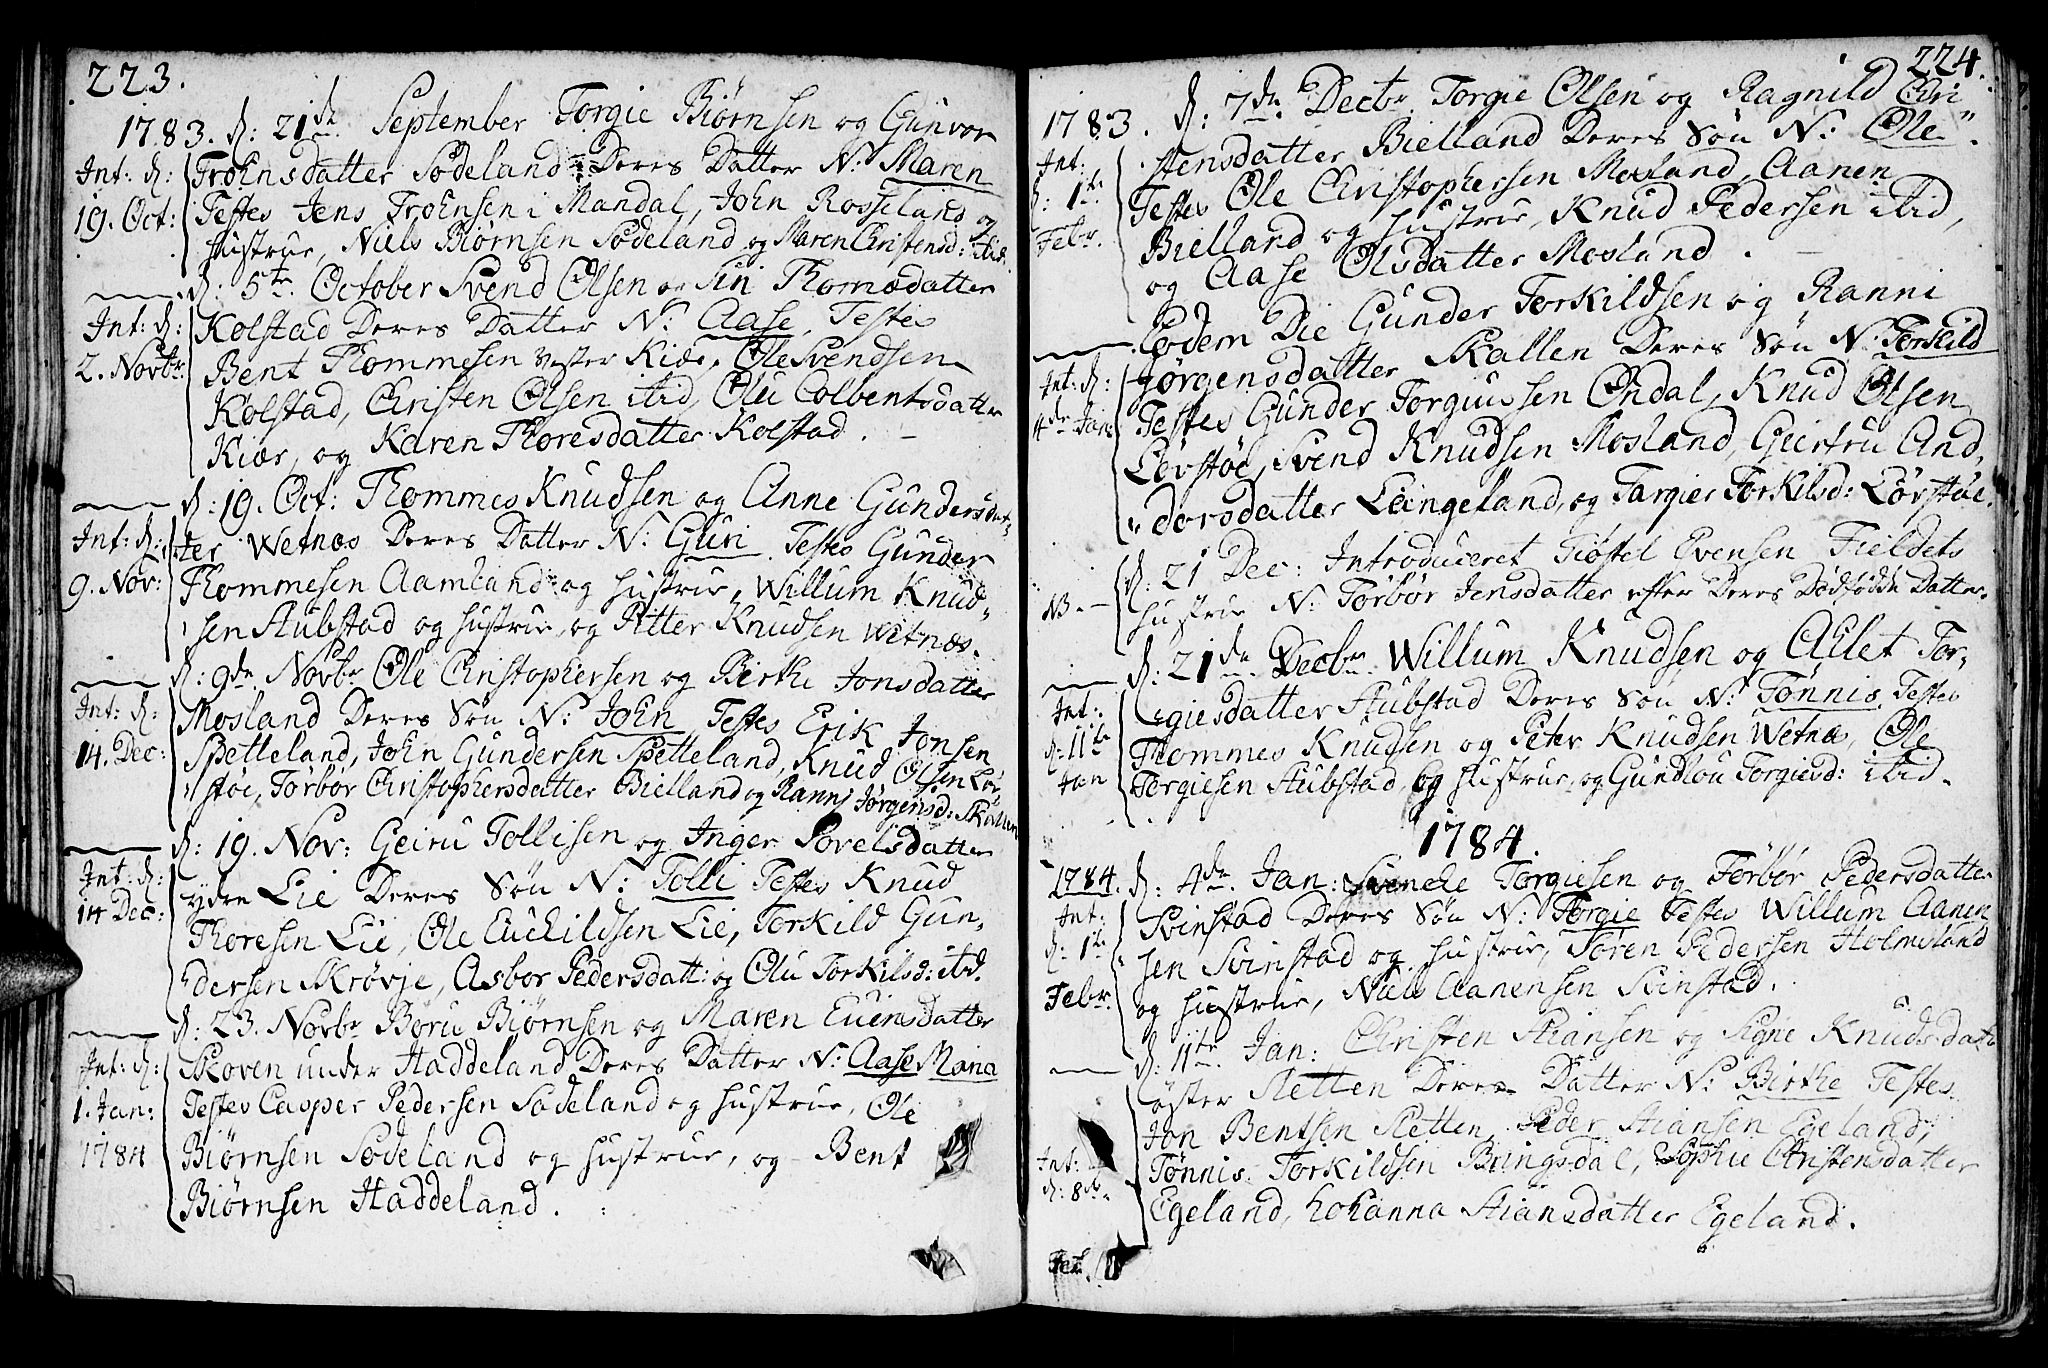 223.
1783. d: 21de September Torgie Biørnsen og Gunvor
Int: d: Trohnsdatter Sødeland Deres Datter N: Maren
19. Oct: Testes Jens Trohnsen i Mandal, John Rosseland og
hustrue, Niels Biørnsen Sødeland og Maren Christensd: ibid.
d: 5te October Svend Olsen og Siri Thomasdatter
Int: d: Kolstad Deres Datter N: Aase, Testes
2. Novbr Bent Thommesen vester Kiær, Ole Svendsen
Kolstad, Christen Olsen ibid, Olu Colbentsdatter
Kiær, og Karen Thoresdatter Kolstad.
d: 19. Oct: Thommes Knudsen og Anne Gundersdat-
Int: d: ter Wetnes Deres Datter N: Guri Testes Gunder
9. Nov: Thommesen Aamland og hustrue, Willum Knud-
sen Aubstad og hustrue, og Pitter Knudsen Wetnes.
d: 9de Novbr Ole Christophersen og Birthe Jonsdatter
Int: d: Mosland Deres Søn N: John Testes Erik Jonsen
14. Dec: Spetteland, John Gundersen Spetteland, Knud Olsen Løv-
støe, Tørbør Christophersdatter Bielland og Ranni Jørgensd: Skallen
d: 19. Nov: Geiru Tollisen og Inger Sovelsdatter
Int: d: ydre Lie Deres Søn N: Tolli Testes Knud
14 Dec: Thoresen Lie, Ole Euchildsen Lie, Torkild Gun-
dersen Skrøvje, Asbor Pedersdatt: og Olu Torkilsd: ibd.
d: 23. Novbr Børu Biørnsen og Maren Euensdatter
Int: d: Skoven under Haddeland Deres Datter N: Aase Maria
1. Jan: Testes Casper Pedersen Sødeland og hustrue, Ole
1784 Biørnsen Sødeland og hustrue, og Bent
Biørnsen Haddeland.
224.
1783. d: 7de Decbr Torgie Olsen og Ragnild Chri-
Int: stensdatter Bielland Deres Søn N: Ole.
d: 1te Testes Ole Christophersen Mosland, Aanen
Febr. Bielland og hustrue, Knud Pedersen ibid,
og Aase Olsdatter Mosland.
Eodem Die Gunder Torkildsen og Ranni
Int: d: Jørgensdatter Skallen Deres Søn N: Torkild
4de Jan: Testes Gunder Torgiussen Ondal, Knud Olsen
Løvstøe, Svend Knudsen Mosland, Geirtru And-
dorsdatter Langeland, og Targier Torkilsd: Løvstøe.
d: 21 Dec: Introduceret Tiøstel Evensen Fieldets
NB. hustrue N: Tørbør Jensdatter efter Deres Dødfødde Datter.
d: 21de Decbr. Willum Knudsen og Ahlet Tor-
Int: giesdatter Aubstad Deres Søn N: Tønnis, Testes
d: 11te Thommes Knudsen og Peter Knudsen Wetnes, Ole
Jan Torgiesen Aubstad og hustrue, og Gundlou Torgiesd: ibid.
1784.
1784. d: 4de Jan: Svenche Torgiesen og Tørbør Pedersdatter
Int: Svinstad Deres Søn N: Torgie Testes Willum Aanen-
d: 1te sen Svinstad og hustrue, Søren Pedersen Holmesland
Febr. og hustrue, Niels Aanensen Svinstad.
d: 11te Jan: Christen Stiansen og Signe Knudsdatt:
øster Sletten Deres Datter N: Birthe Testes
Jon Bentsen Sletten, Peder Stiansen Egeland,
Int: Tønnis Torkildsen Bringsdal, Sophie Christensdatter
d: 8de Egeland, Johanna Stiansdatter Egeland.
Feb.